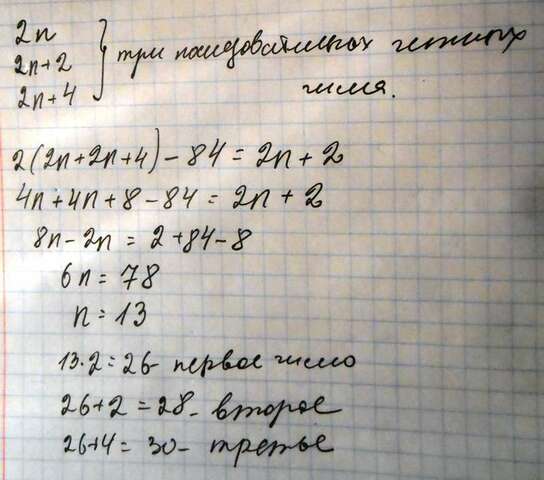 2n
2n+2 } три последовательных четных
2n+4 числа.
2(2n+2n+4)-84=2n+2
4n+4n+8-84=2n+2
8n-2n=2+84-8
6n=78
n=13
13·2=26- первое число
26+2=28- второе
26+4=30- третье